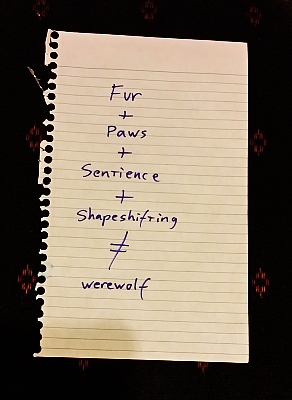 Fur
+
Paws
+
Sentience
+
Shapeshifting
≠
werewolf